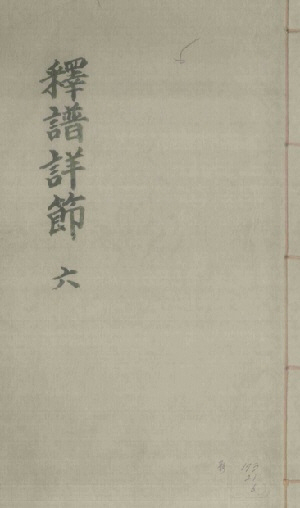 釋譜詳節 六